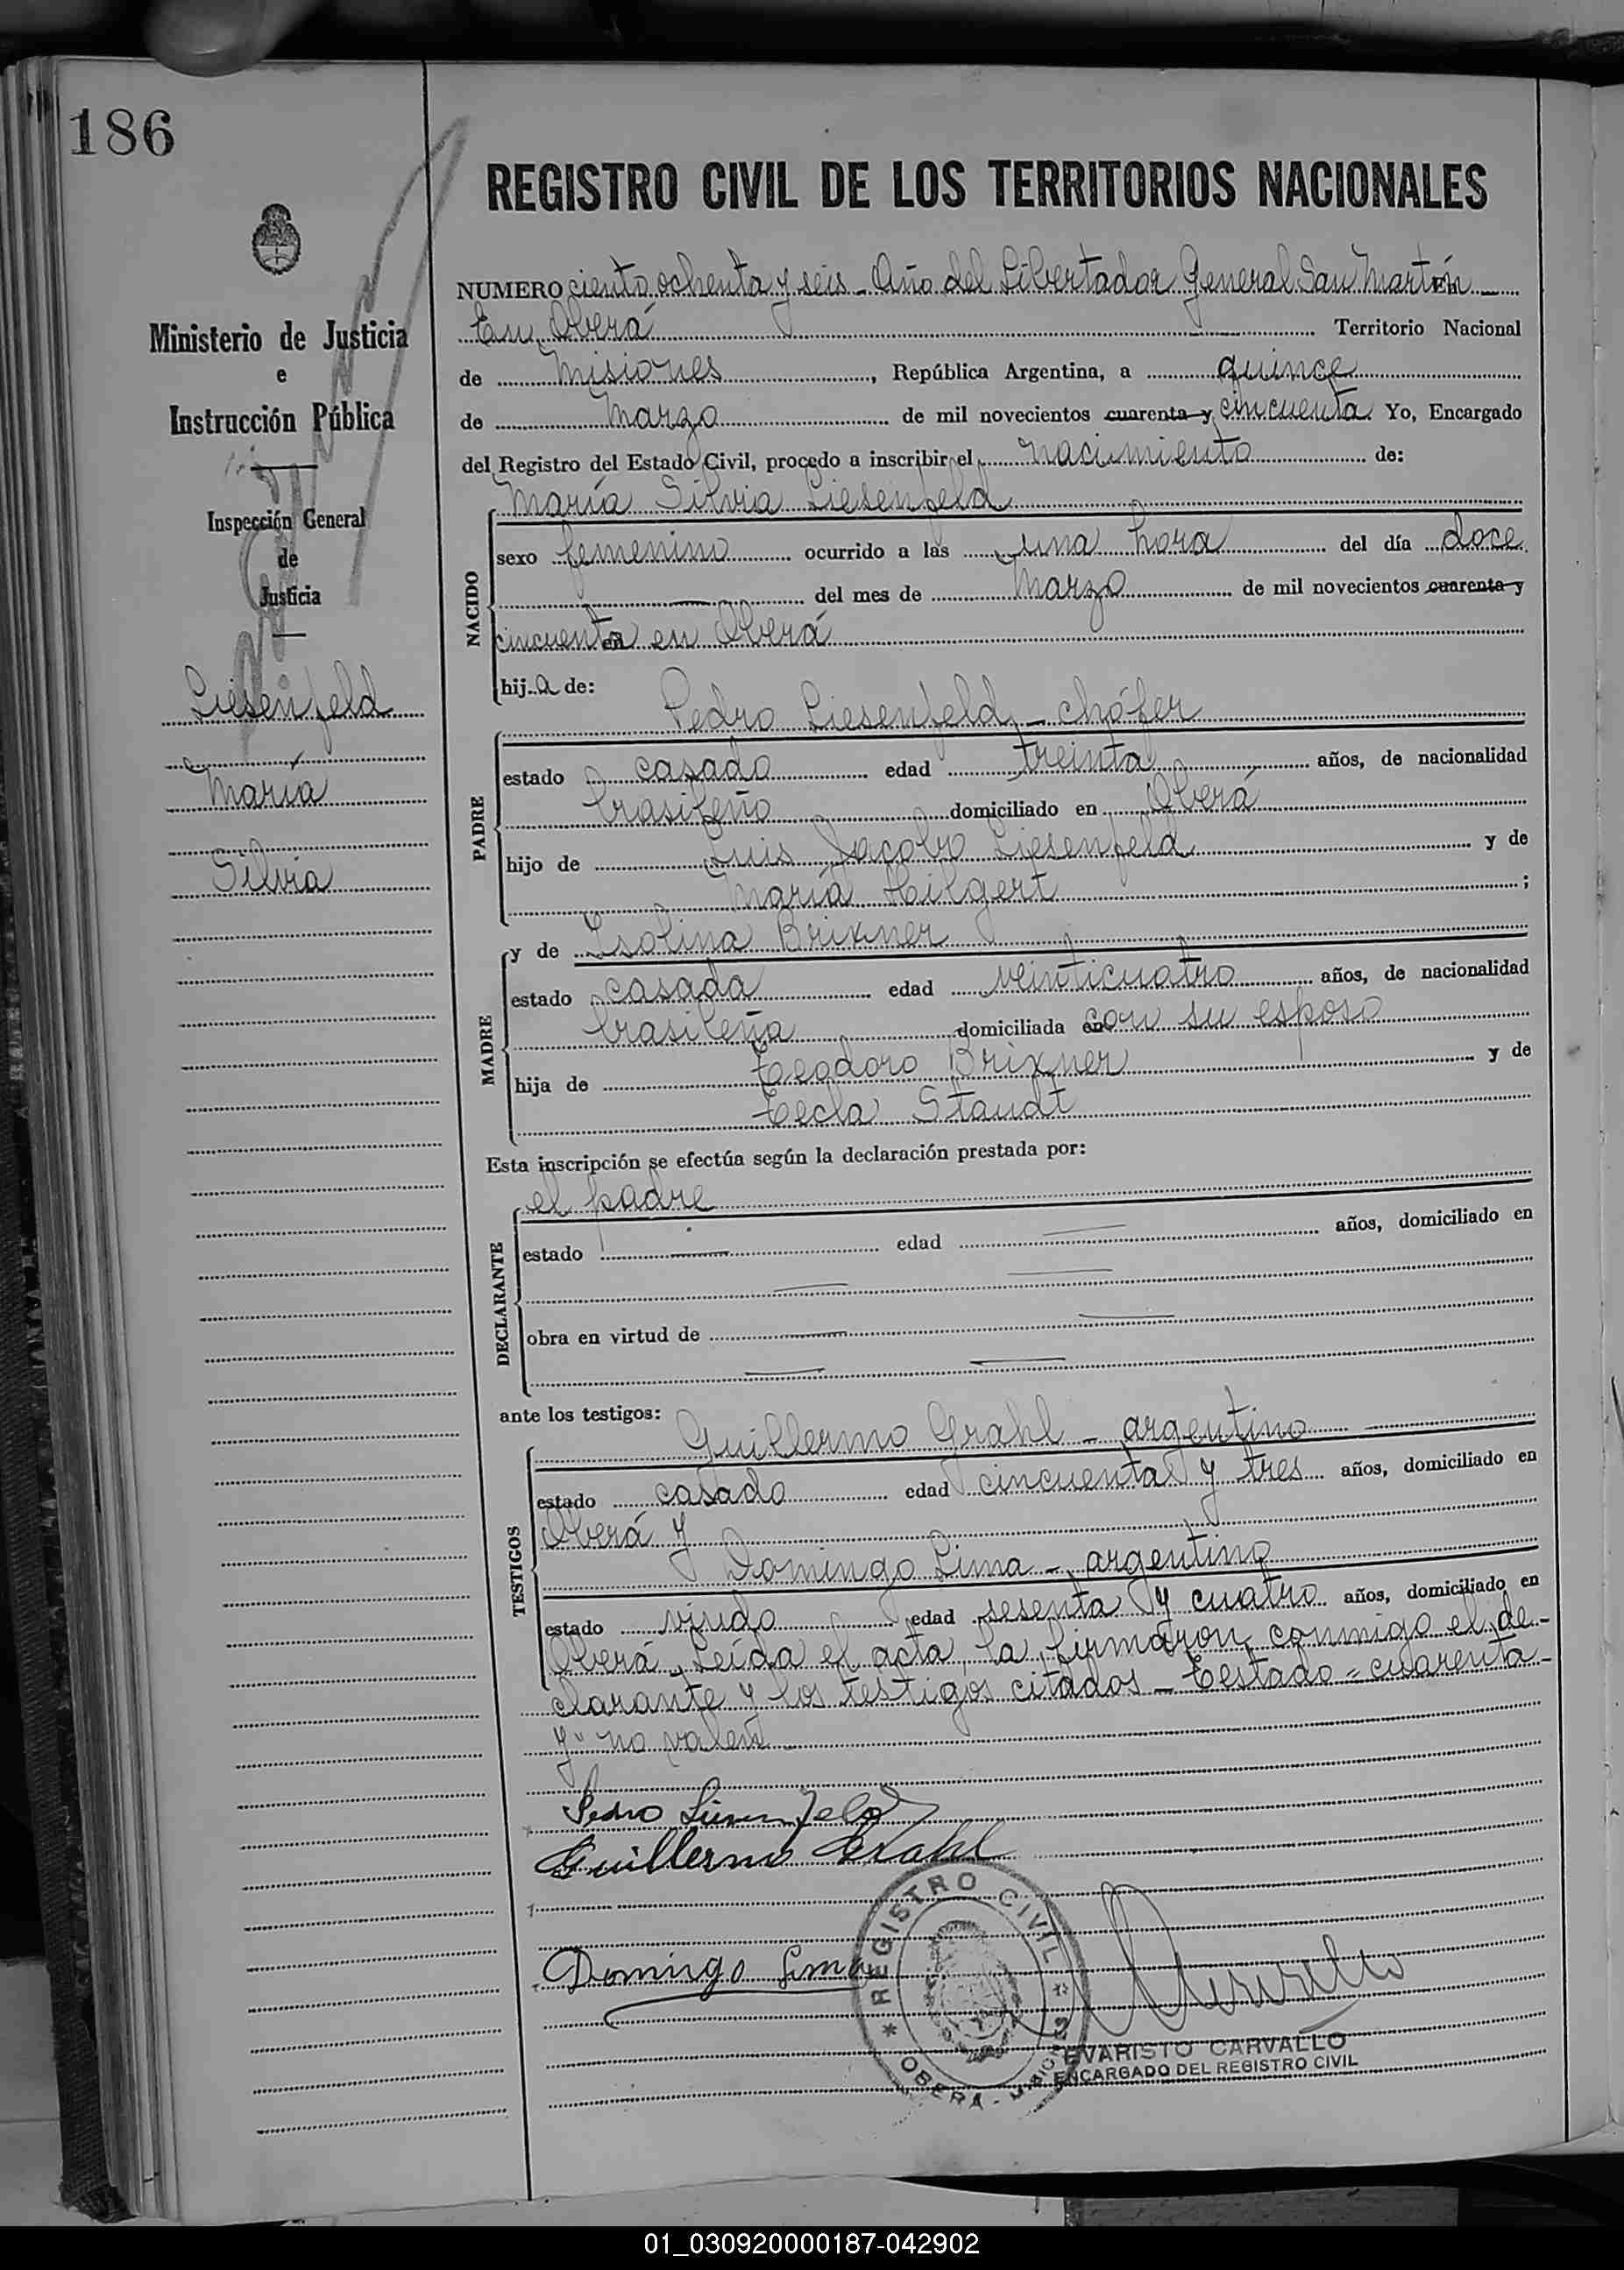 186
REGISTRO CIVIL DE LOS TERRITORIOS NACIONALES
Ministerio de Justicia
e
Instrucción Pública
Inspección General
de
Justicia
Liesenfeld
María
Silvia
NUMERO ciento ochenta y seis - Año del Libertador General San Martín
En Oberá Territorio Nacional
de Misiones, República Argentina, a quince
de Marzo de mil novecientos cuarenta y cincuenta Yo, Encargado
del Registro del Estado Civil, procedo a inscribir el nacimiento de:
María Silvia Liesenfeld
NACIDO
sexo femenino ocurrido a las una hora del día doce
del mes de Marzo de mil novecientos cuarenta y
cincuenta en Oberá
hija de:
Pedro Liesenfeld - chófer
PADRE
estado casado edad treinta años, de nacionalidad
brasileño domiciliado en Oberá
hijo de Luis Jacobo Liesenfeld y de
María Hilgert ;
y de Isolina Brixner
MADRE
estado casada edad veinticuatro años, de nacionalidad
brasileña domiciliada en con su esposo
hija de Teodoro Brixner y de
Tecla Staudt
Esta inscripción se efectúa según la declaración prestada por:
el padre
DECLARANTE
estado edad años, domiciliado en
obra en virtud de
ante los testigos:
Guillermo Grahl - argentino
TESTIGOS
estado casado edad cincuenta y tres años, domiciliado en
Oberá y
Domingo Lima - argentino
estado viudo edad sesenta y cuatro años, domiciliado en
Oberá. Leída el acta, la firmaron conmigo el de-
clarante y los testigos citados - Testado = cuarenta -
y" no valen
Pedro Liesenfeld
Guillermo Grahl
Domingo Lima
* REGISTRO CIVIL *
OBERA - MISIONES
EVARISTO CARVALLO
ENCARGADO DEL REGISTRO CIVIL
01_030920000187-042902